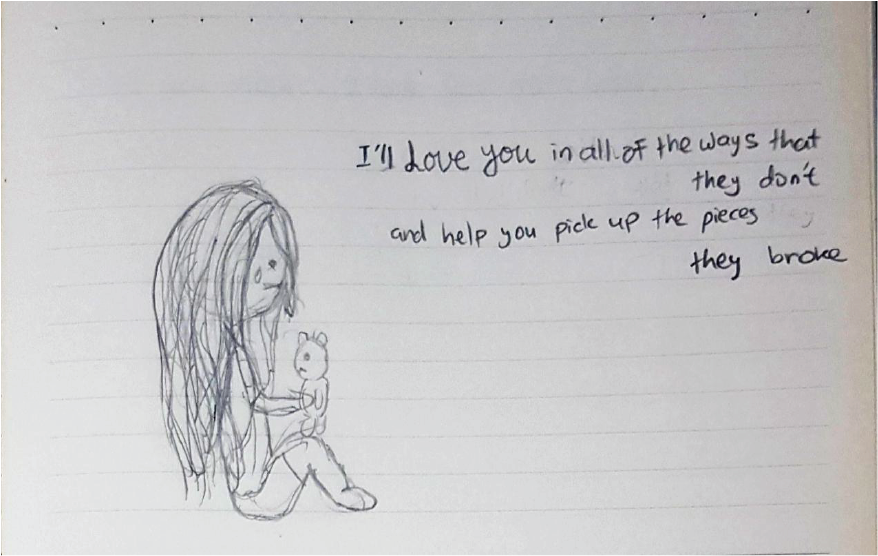 I'll Love you in all of the ways that
they don't
and help you pick up the pieces
they broke